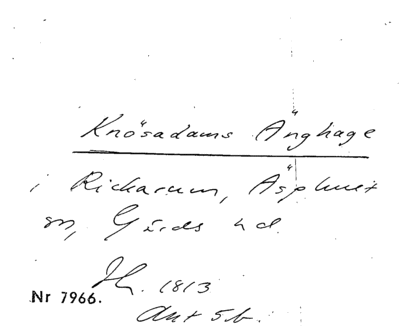 Knösadams Änghage
i Rickarum, Äsphult
sn, Gärds hd.
1813
Nr 7966.
Akt 5b.